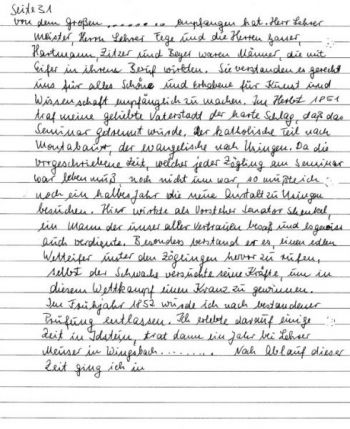 Seite 31
von dem großen ......... empfangen hat. Herr Lehrer
meister, Herrn Lehrer Fege und die Herren
Hartmann, Zitzer und Beyer waren Männer, die mit
Eifer in ihrem Beruf wirkten. Sie verstanden es gerecht
uns für alles Schöne und erhabene für Kunst und
Wissenschaft empfänglich zu machen. Im Herbst 1851
traf meine geliebte Vaterstadt der harte Schlag, daß das
Seminar getrennt würde, der katholische Teil nach
Montabaur, der evangelische nach Usingen. Da die
vorgeschriebene Zeit, welcher jeder Zögling am Seminar
war leben muß, noch nicht um war, so mußte ich
noch ein halbes Jahr die neue Anstalt zu Usingen
besuchen. Hier wirkte als Vorsteher Senator Schenkel,
ein Mann der unser aller Vertrauen besaß und
auch verdiente. Besonders verstand er es, einen edlen
Wetteifer unter den Zöglingen hervor zu rufen,
selbst der Schwache versuchte seine Kräfte, um in
diesem Wettkampf einen Kranz zu gewinnen.
Im Frühjahr 1852 wurde ich nach bestandener
Prüfung entlassen. Ich erlebte darauf einige
Zeit in Idstein, trat dann ein Jahr bei Lehrer
Meuser in Wingsbach ........ Nach Ablauf dieser
Zeit ging ich in